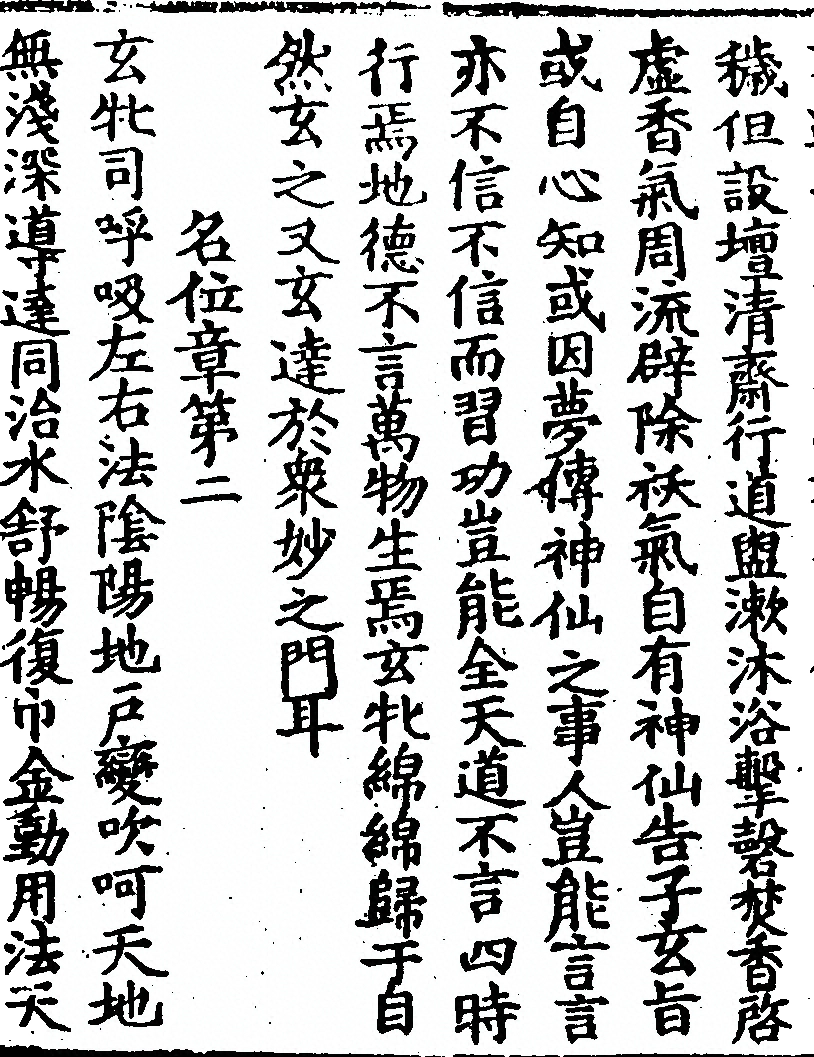 穢但設壇清齋行道盥漱沐浴擊磬焚香啓
虛香氣周流辟除祅氣自有神仙告子玄旨
或自心知或因夢傳神仙之事人豈能言言
亦不信不信而習功豈能全天道不言四時
行焉地德不言萬物生焉玄牝綿綿歸于自
然玄之又玄達於衆妙之門耳
名位章第二
玄牝司呼吸左右法陰陽地戶變吹呵天地
無淺深導達同治水舒暢復巾金動用法天